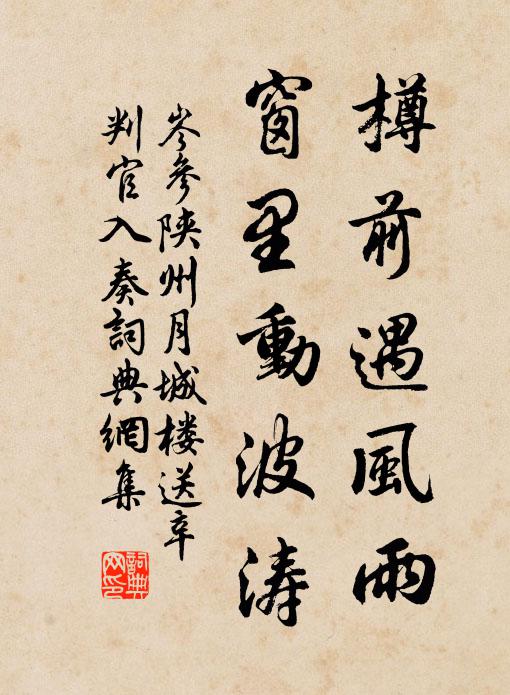 樽前遇風雨
窗里動波涛
岑參陝州月城楼送辛
判官入奏詞典網集
詞典网印